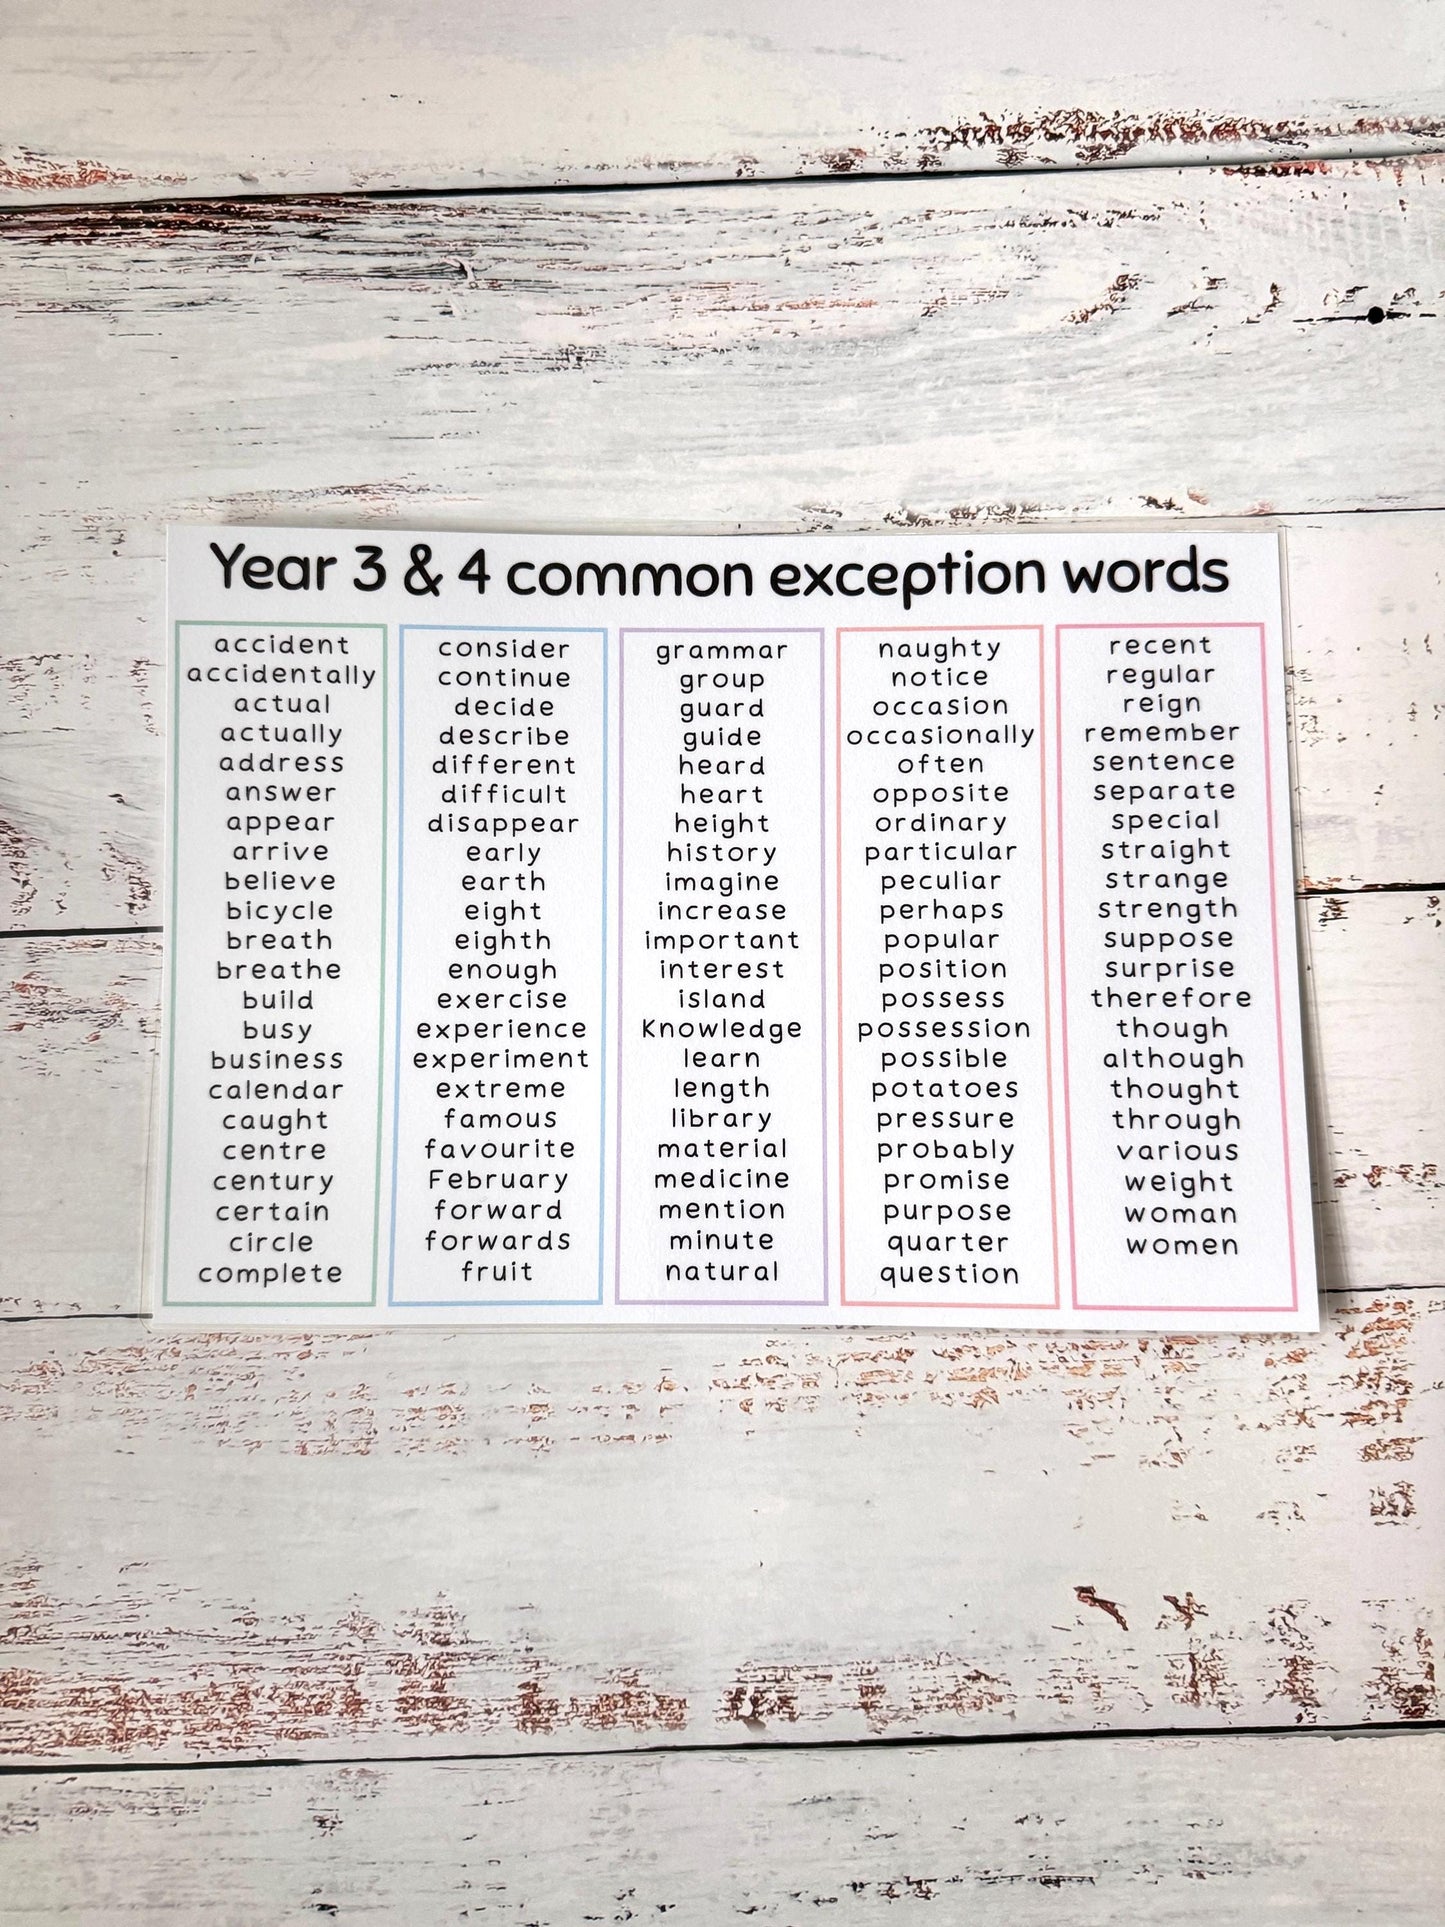 Year 3 & 4 common exception words
accident
accidentally
actual
actually
address
answer
appear
arrive
believe
bicycle
breath
breathe
build
busy
business
calendar
caught
centre
century
certain
circle
complete
consider
continue
decide
describe
different
difficult
disappear
early
earth
eight
eighth
enough
exercise
experience
experiment
extreme
famous
favourite
February
forward
forwards
fruit
grammar
group
guard
guide
heard
heart
height
history
imagine
increase
important
interest
island
Knowledge
learn
length
library
material
medicine
mention
minute
natural
naughty
notice
occasion
occasionally
often
opposite
ordinary
particular
peculiar
perhaps
popular
position
possess
possession
possible
potatoes
pressure
probably
promise
purpose
quarter
question
recent
regular
reign
remember
sentence
separate
special
straight
strange
strength
suppose
surprise
therefore
though
although
thought
through
various
weight
woman
women